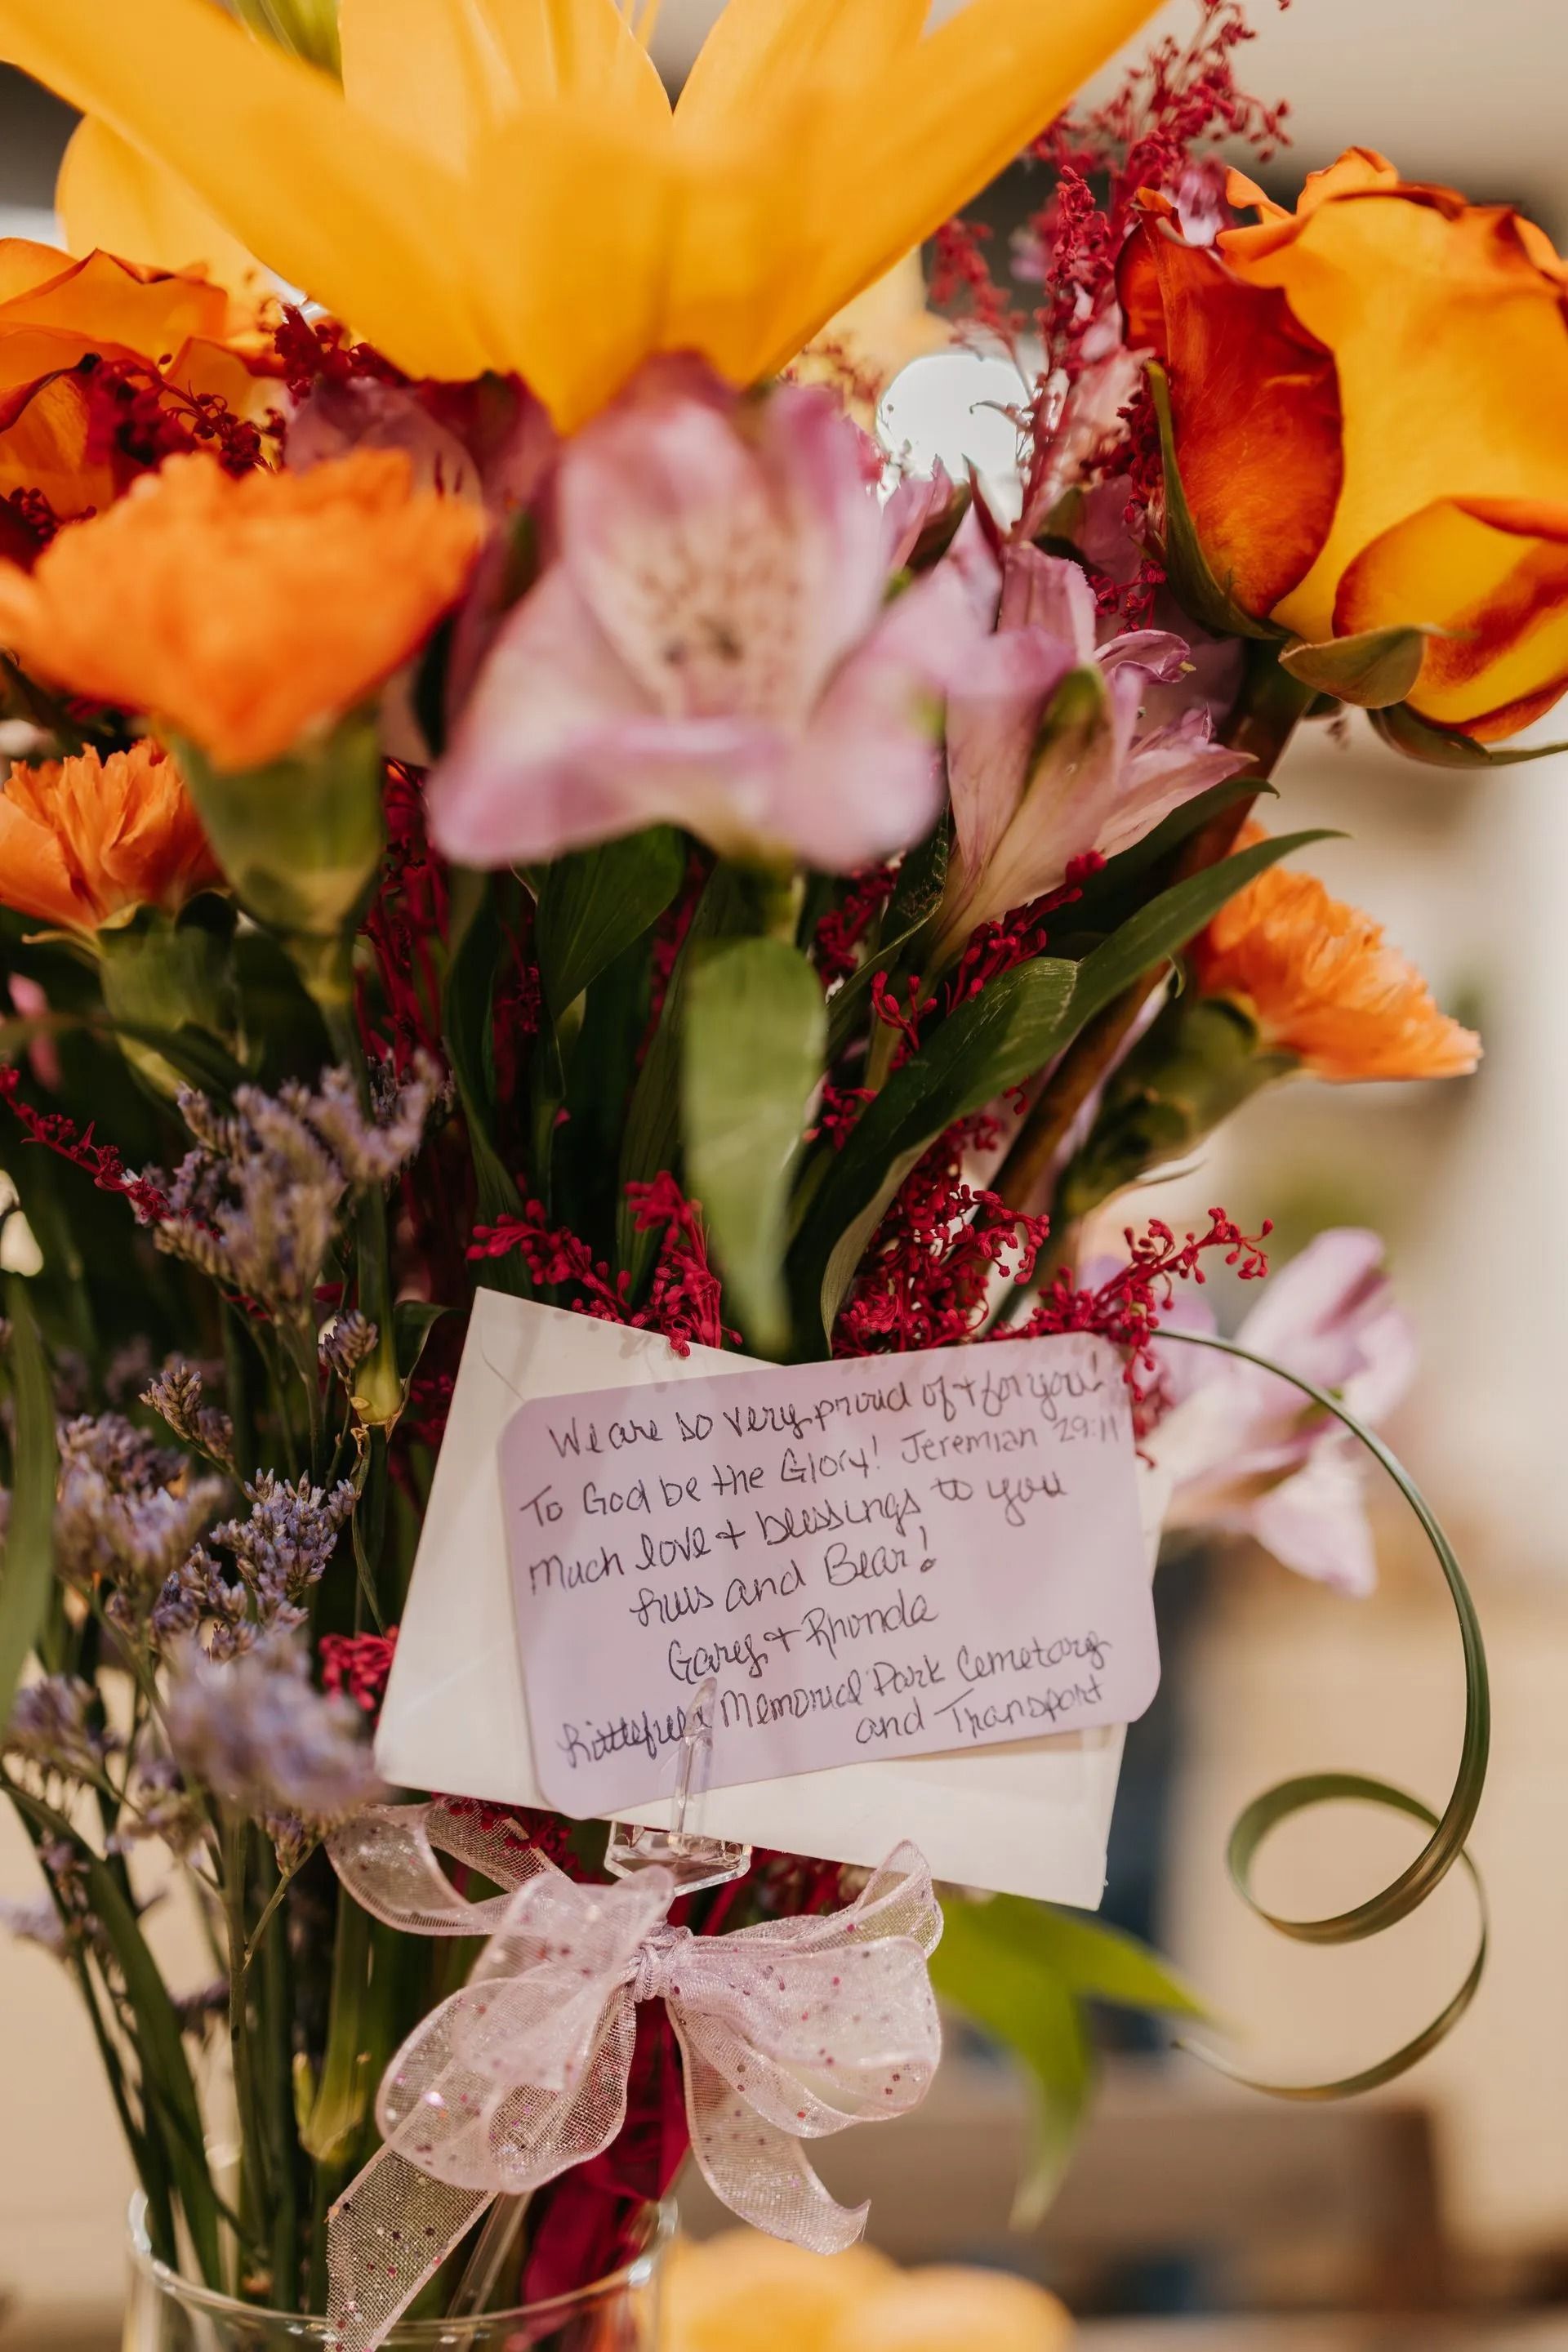 We are so very proud of + for you!
To God be the Glory! Jeremiah 29:11
Much love + blessings to you
and Bear!
Gary + Rhonda
Littlefield Memorial Park Cemetary
and Transport